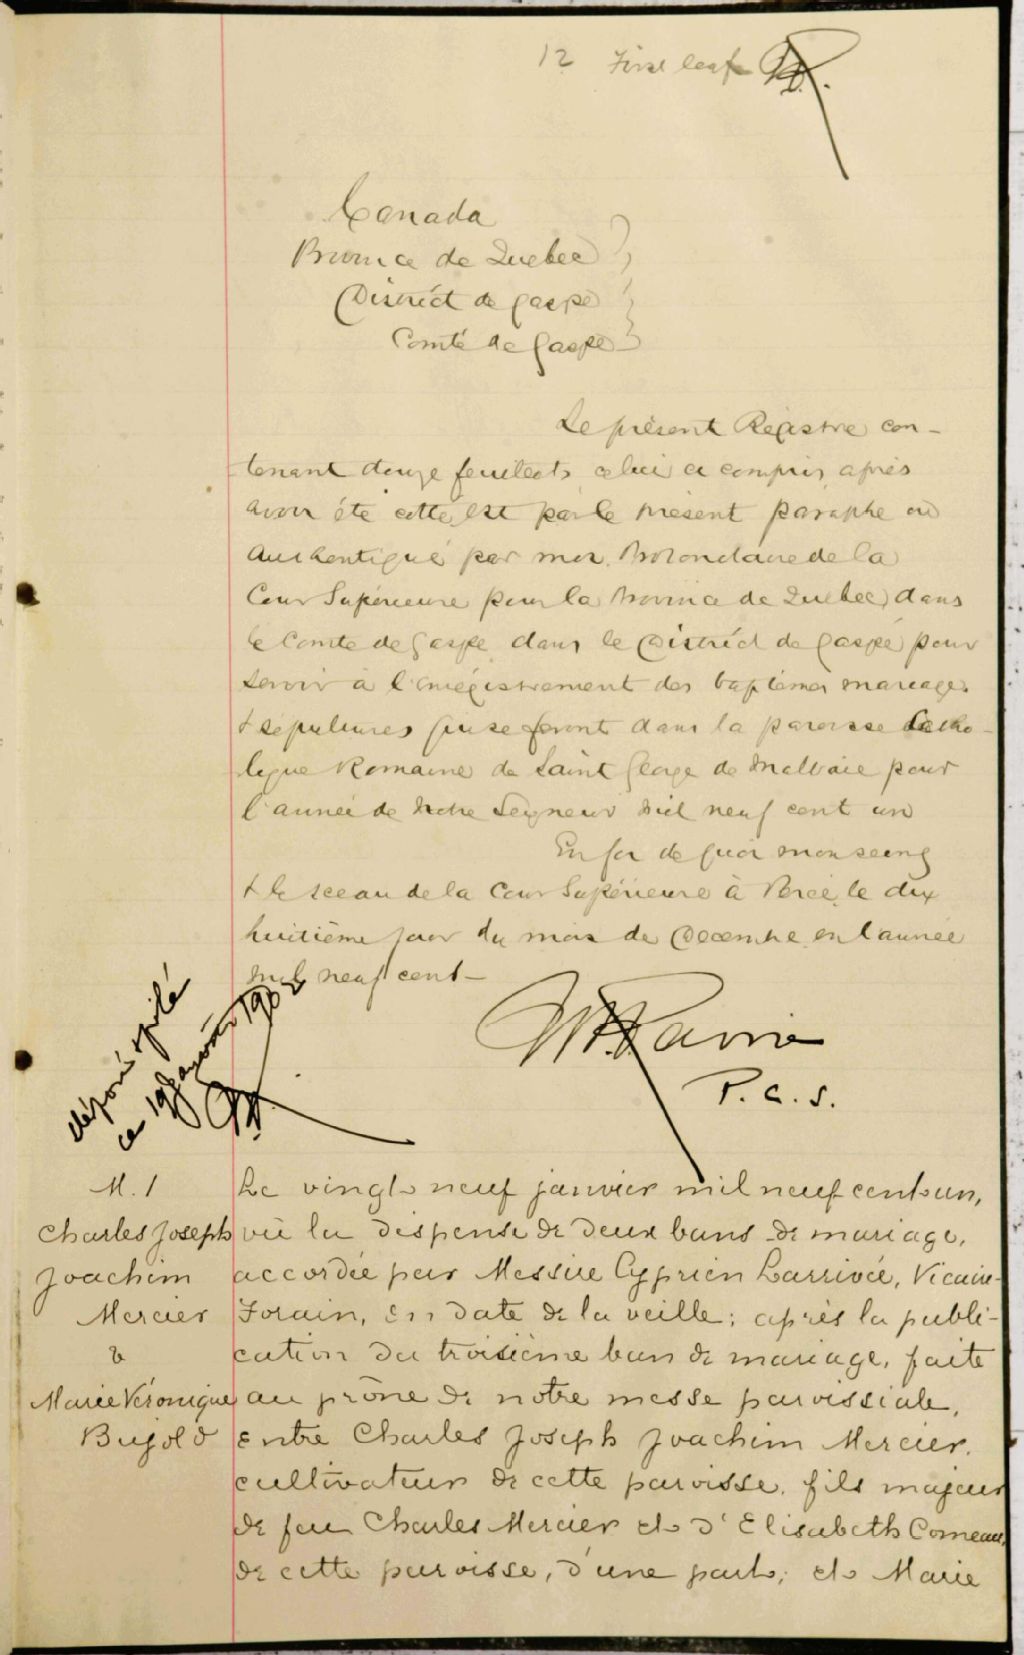 12 First leaf
Canada
Province de Quebec
District de Gaspé
Comté de Gaspé
Le présent Registre con-
tenant douze feuillets celui ci compris, après
avoir été coté, est par le présent paraphé et
Authentiqué par moi Protonotaire de la
Cour Supérieure pour la Province de Quebec dans
le Comté de Gaspé, dans le District de Gaspé pour
servir à l'enrégistrement des baptêmes mariages
& sépultures qui se feront dans la paroisse Catho-
lique Romaine de Saint George de Malbaie pour
l'année de Notre Seigneur Mil neuf cent un
En foi de quoi mon seing
& le sceau de la Cour Supérieure à Percé, le dix
huitième jour du mois de Decembre en l'année
mil neuf cent -
déposé & filé
ce 19 Janvier 1902
P. C. S.
M. 1
Charles Joseph
Joachim
Mercier
&
Marie Véronique
Bujold
Le vingt neuf janvier mil neuf cent un,
vu la dispense de deux bans de mariage,
accordée par Messire Cyprien Larrivée, Vicaire-
Forain, en date de la veille; après la publi-
cation du troisième ban de mariage, faite
au prône de notre messe paroissiale,
entre Charles Joseph Joachim Mercier,
cultivateur de cette paroisse, fils majeur
de feu Charles Mercier et d'Elisabeth Comeau,
de cette paroisse, d'une part; et Marie